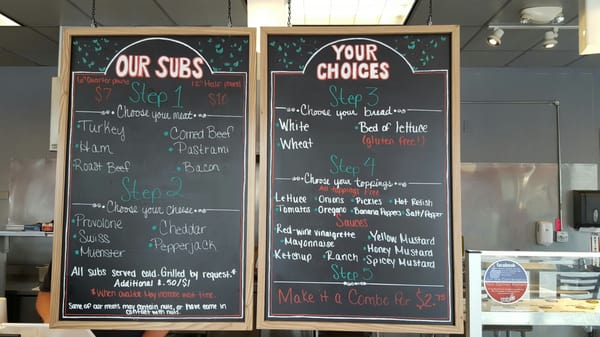 OUR SUBS
6" Quarter pound
$7
12" Half pound
$10
Step 1
Choose your meat
Turkey
Corned Beef
Ham
Pastrami
Roast Beef
Bacon
Step 2
Choose your cheese
Provolone
Cheddar
Swiss
Pepperjack
Muenster
All subs served cold. Grilled by request.*
Additional $.50/$1
*When available. May increase wait time.
Some of our meats may contain nuts, or have come in
contact with nuts.
YOUR
CHOICES
Step 3
Choose your bread
White
Bed of lettuce
Wheat
(gluten free!)
Step 4
Choose your toppings
All toppings Free
Lettuce Onions Pickles Hot Relish
Tomatoes Oregano Banana Peppers Salt/Pepper
Sauces
Red-wine vinaigrette
Yellow Mustard
Mayonnaise
Honey Mustard
Ketchup Ranch Spicey Mustard
Step 5
Make it a Combo for $2.75
facebook